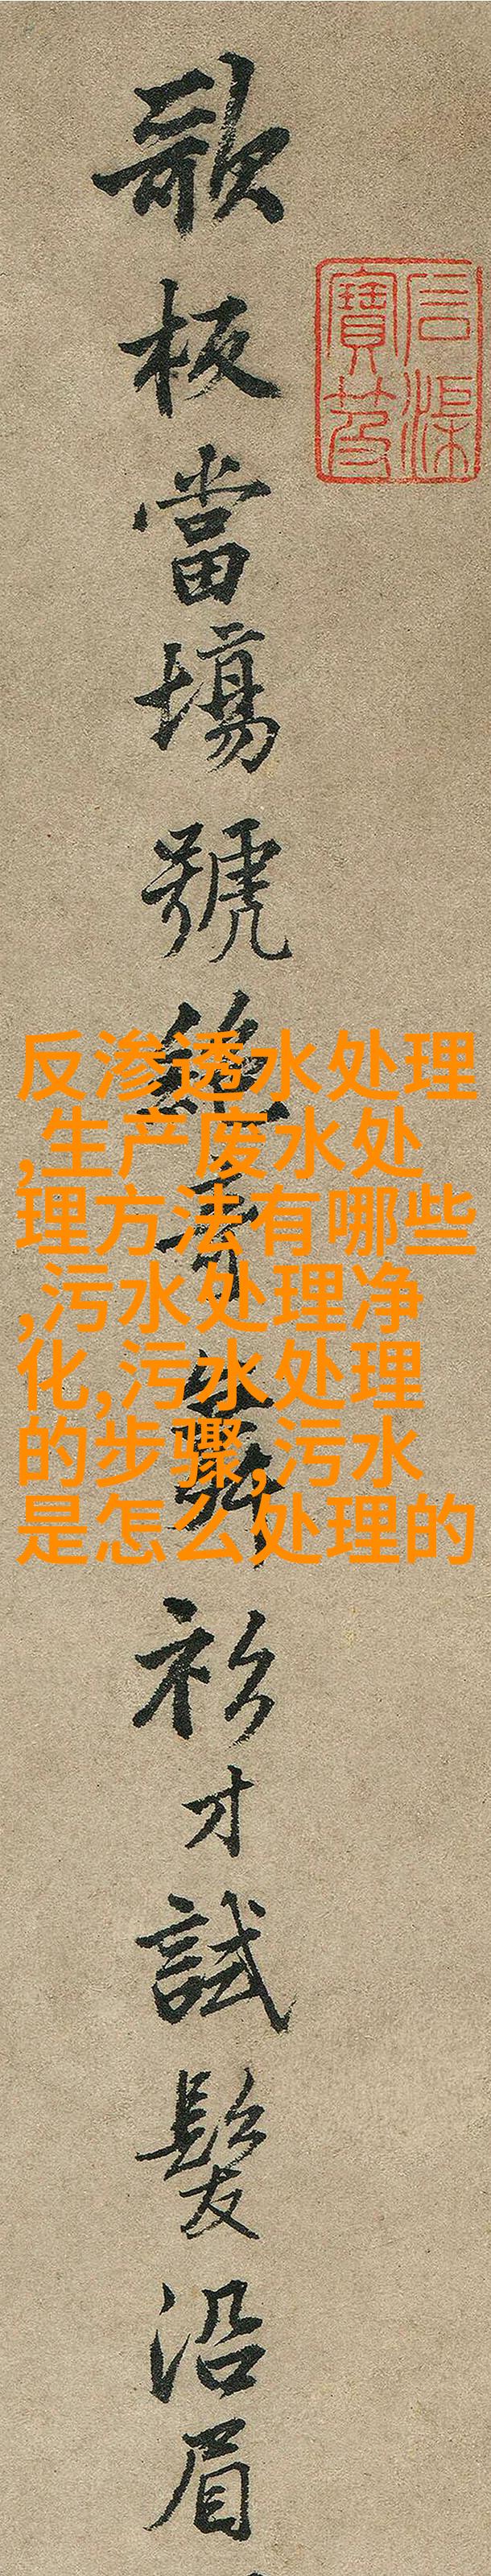 歌板當場號絕奇舞衫才試髮沿眉
石渠
寶笈
反渗透水处理
,生产废水处
理方法有哪些
,污水处理净
化,污水处理
的步骤,污水
是怎么处理的